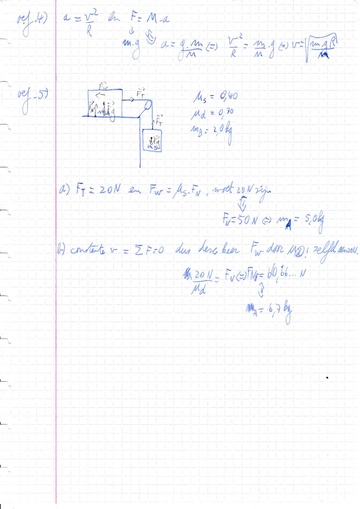 oef. 4) a = v²/R en F = M·a
m·g a = g·m/M ⇔ v²/R = m/M g ⇔ v = √(m g R/M)
oef. 5)
μs = 0,40
μd = 0,30
mB = 2,0 kg
a) FT = 20N en Fw = μs·FN, moet 20N zijn
FN = 50N ⇔ mA = 5,0 kg
b) constante v = ΣF=0 dus deze keer Fw door μd,
20N/μd = FN ⇔ FN = 66,66... N
mA = 6,7 kg